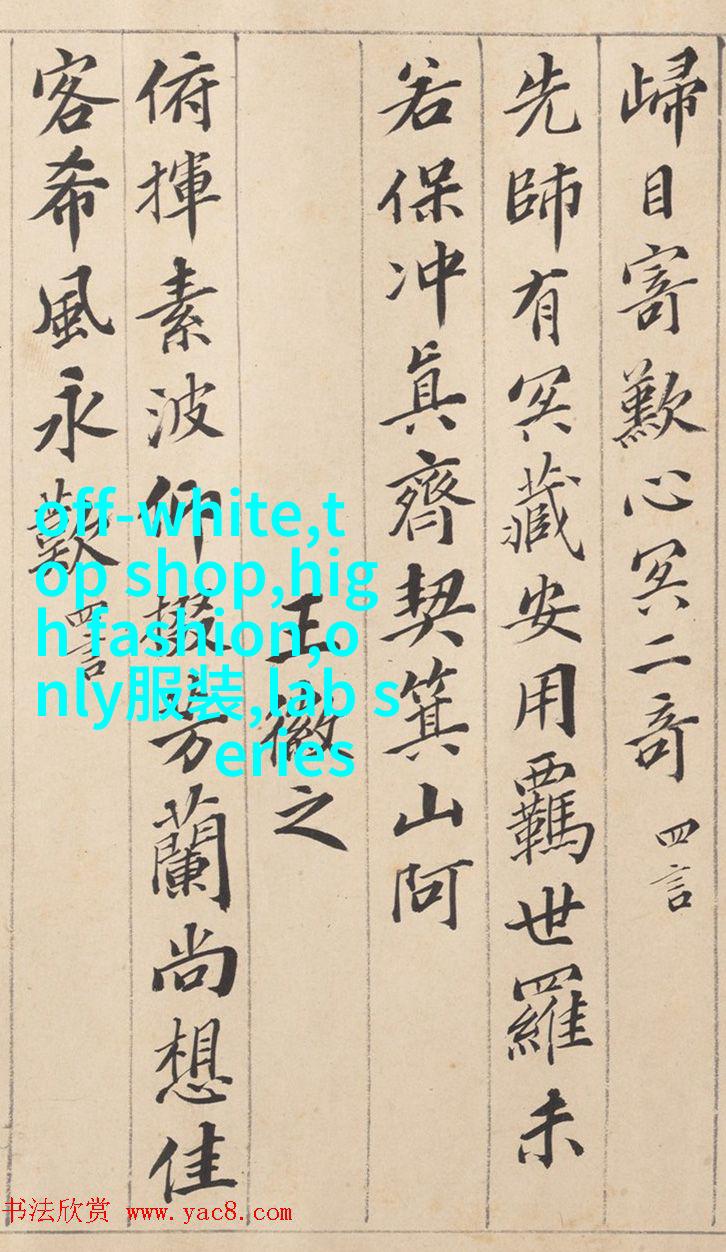 歸目寄歎心冥二奇 四言
先師有冥藏安用羈世羅未
若保冲眞齊契箕山阿
王徽之
俯揮素波仰掇芳蘭尚想佳
客希風永歎 四言
off-white,t
op shop,hig
h fashion,o
nly服装,lab s
eries
书法欣赏 www.yac8.com